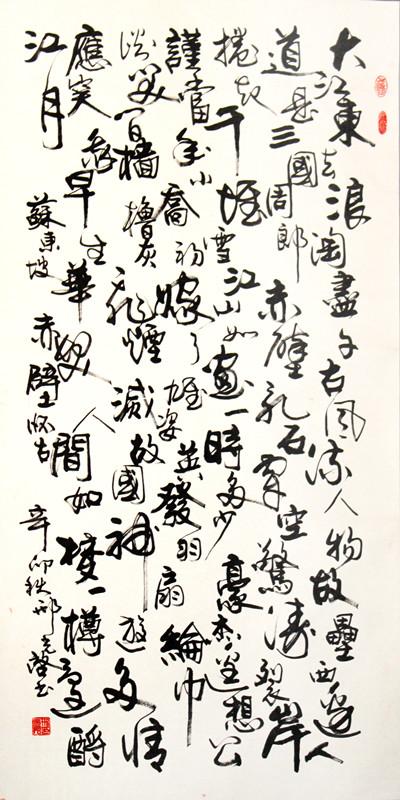 大江東去浪淘盡千古風流人物故壘西邊人
道是三國周郎赤壁亂石穿空驚濤裂岸
捲起千堆雪江山如畫一時多少豪杰遙想公
謹當年小喬初嫁了雄姿英發羽扇綸巾
談笑間檣櫓灰飛煙滅故國神遊多情
應笑我早生華髮人間如夢一樽還酹
江月 蘇東坡 赤壁懷古 辛卯秋邢克書